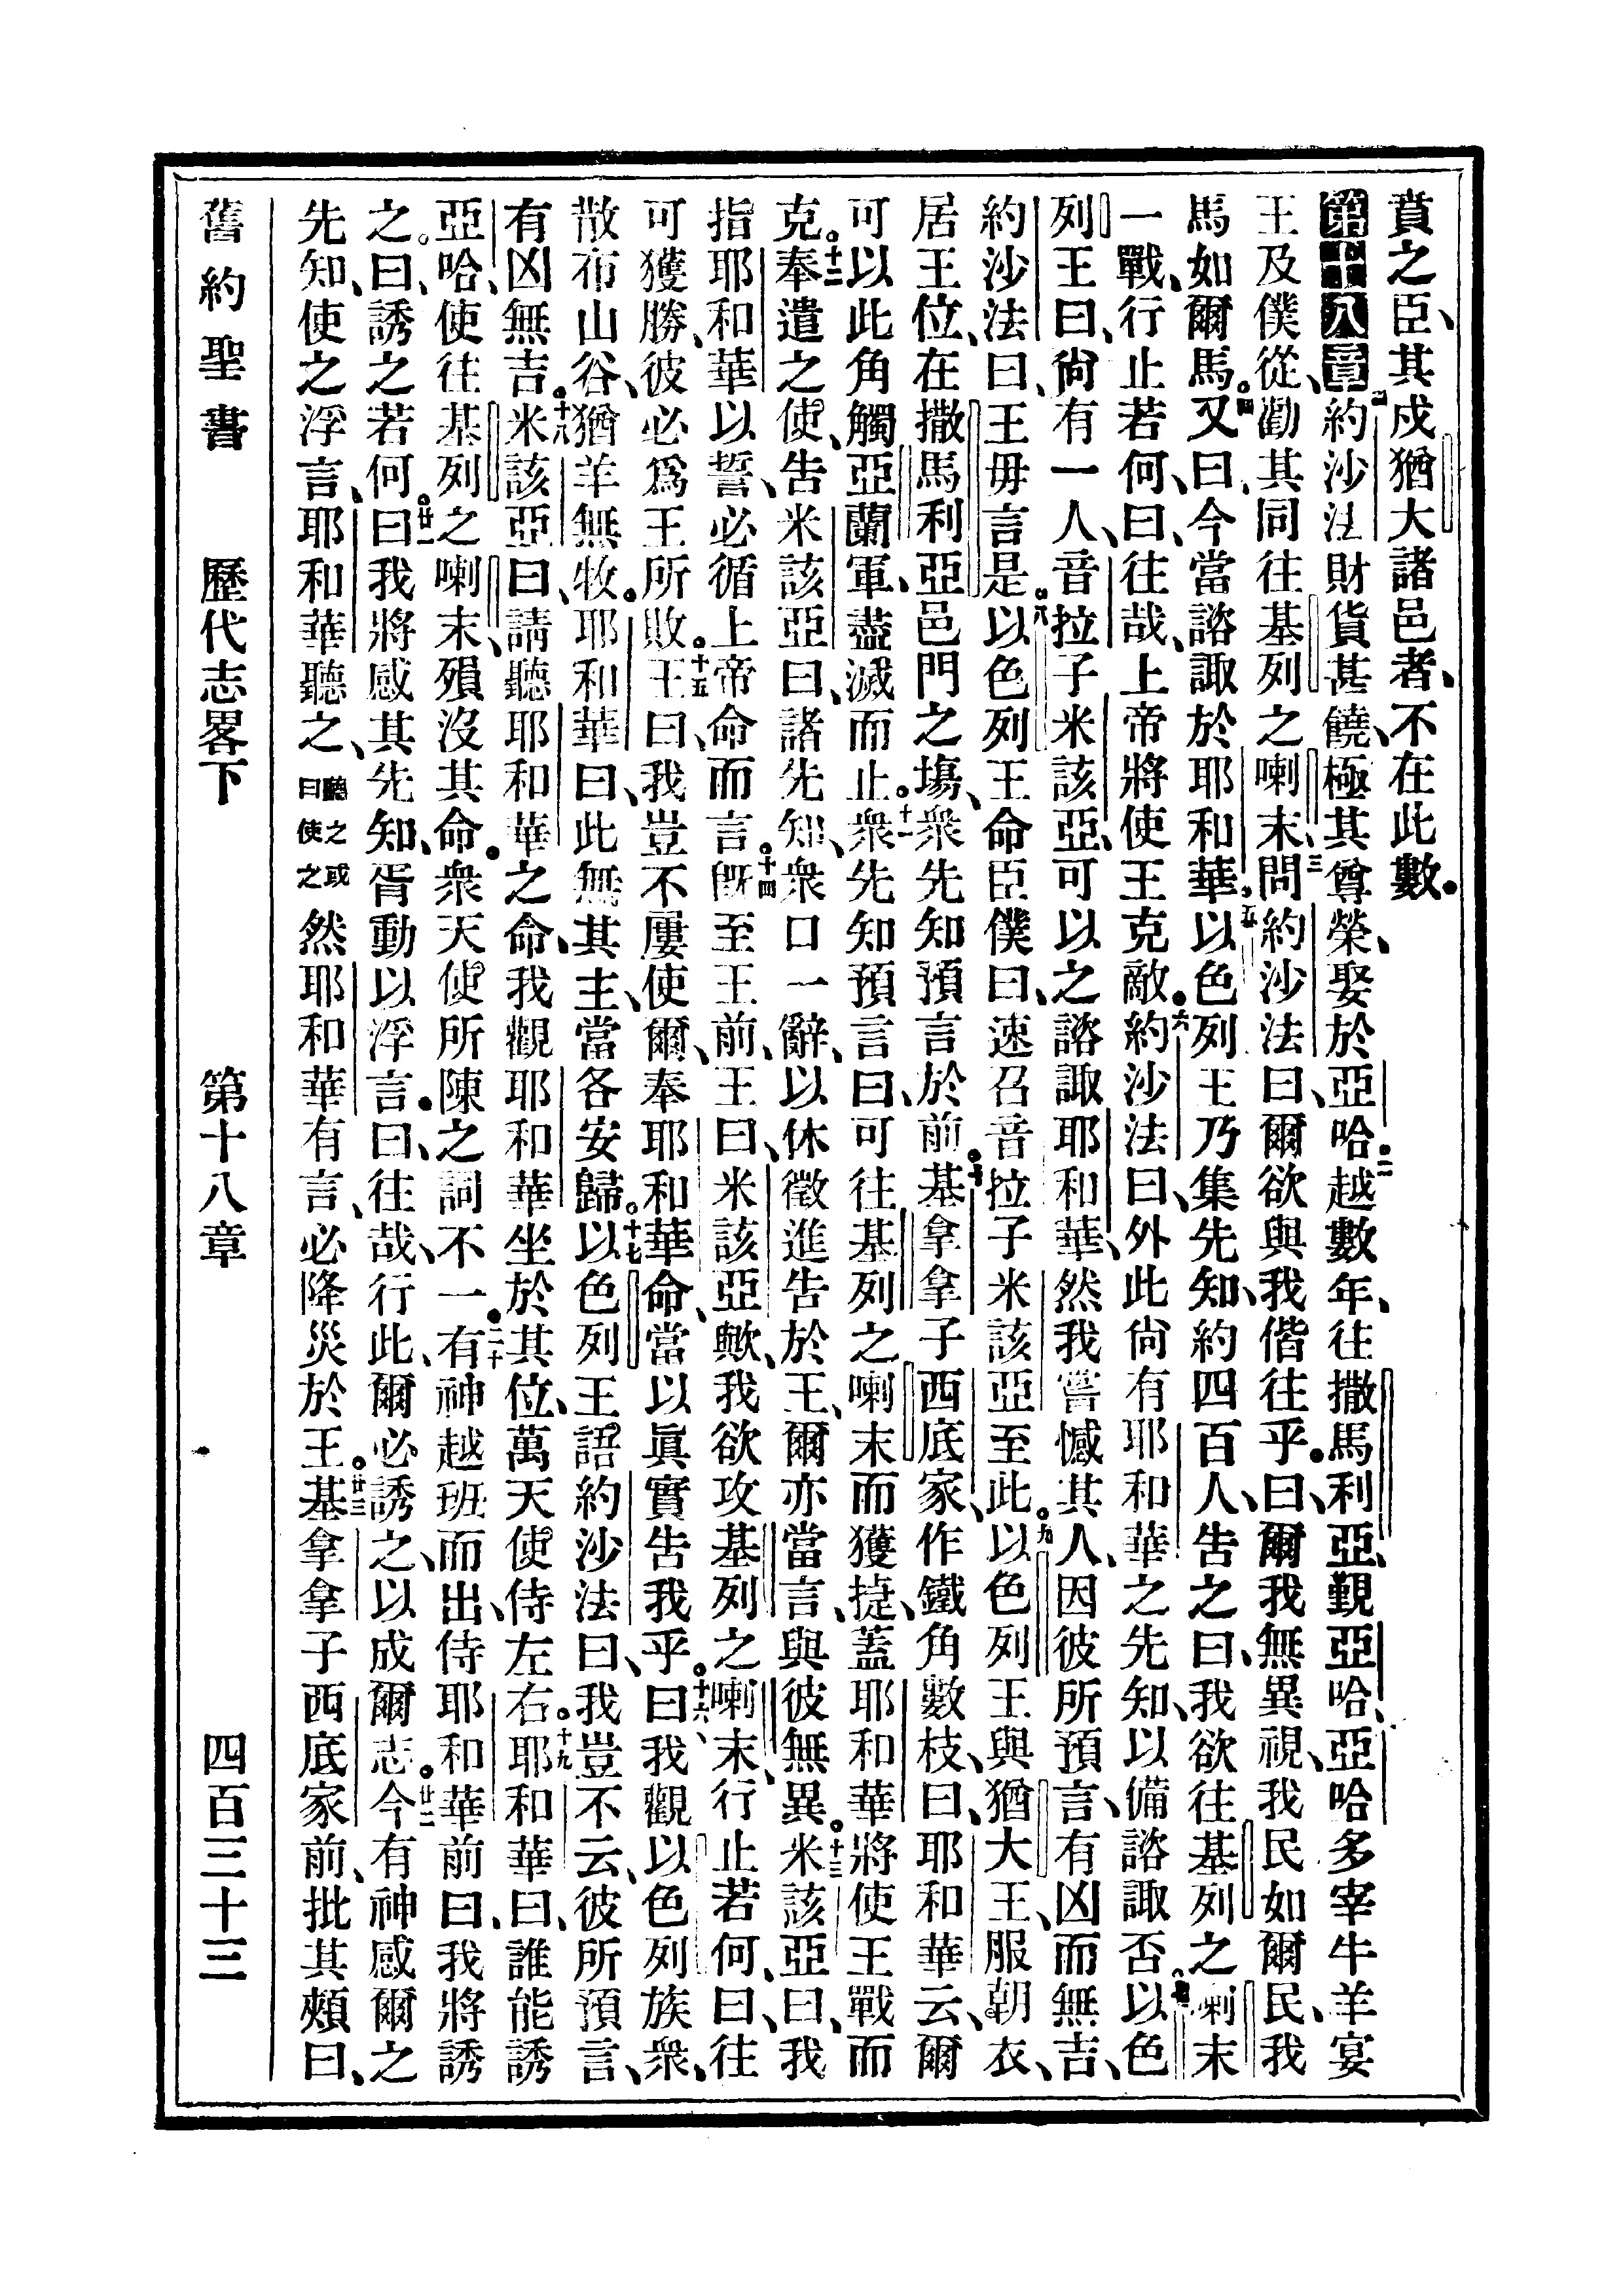 賁之臣、其戍猶大諸邑者、不在此數。
第十八章一約沙法財貨甚饒、極其尊榮、娶於亞哈。二越數年、往撒馬利亞、覲亞哈、亞哈多宰牛羊宴
王及僕從、勸其同往基列之喇末、三問約沙法曰、爾欲與我偕往乎。曰、爾我無異視、我民如爾民、我
馬如爾馬。四又曰、今當諮諏於耶和華。五以色列王乃集先知、約四百人、告之曰、我欲往基列之喇末
一戰、行止若何、曰、往哉、上帝將使王克敵。六約沙法曰、外此尚有耶和華之先知、以備諮諏否。七以色
列王曰、尚有一人、音拉子米該亞、可以之諮諏耶和華、然我嘗憾其人、因彼所預言、有凶而無吉、
約沙法曰、王毋言是。八以色列王命臣僕曰、速召音拉子米該亞至此。九以色列王與猶大王、服朝衣、
居王位、在撒馬利亞邑門之塲、衆先知預言於前。十基拿拿子西底家、作鐵角數枝、曰、耶和華云、爾
可以此角觸亞蘭軍、盡滅而止。十一衆先知預言曰、可往基列之喇末而獲捷、蓋耶和華將使王戰而
克。十二奉遣之使、告米該亞曰、諸先知、衆口一辭、以休徵進告於王、爾亦當言、與彼無異。十三米該亞曰、我
指耶和華以誓、必循上帝命而言。十四旣至王前、王曰、米該亞歟、我欲攻基列之喇末、行止若何、曰、往
可獲勝、彼必爲王所敗。十五王曰、我豈不屢使爾、奉耶和華命、當以眞實告我乎。十六曰、我觀以色列族衆、
散布山谷、猶羊無牧。耶和華曰、此無其主、當各安歸。十七以色列王語約沙法曰、我豈不云、彼所預言、
有凶無吉。十八米該亞曰、請聽耶和華之命、我觀耶和華坐於其位、萬天使侍左右。十九耶和華曰、誰能誘
亞哈、使往基列之喇末、殞沒其命。衆天使所陳之詞不一。二十有神越班而出、侍耶和華前曰、我將誘
之。曰、誘之若何。廿一曰、我將感其先知、胥動以浮言。曰、往哉、行此、爾必誘之、以成爾志。廿二今有神感爾之
先知、使之浮言、耶和華聽之、聽之或曰使之然耶和華有言、必降災於王。廿三基拿拿子西底家前、批其頰曰、
舊約聖書 歷代志畧下 第十八章 四百三十三